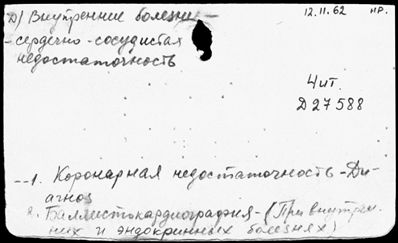 12.11.62 пр.
Д) Внутренние болезни -
- сердечно-сосудистая
недостаточность
Чит.
Д27588
--1. Коронарная недостаточность - Ди-
агноз
2. Баллистокардиография - (При внутрен-
них и эндокринных болезнях)